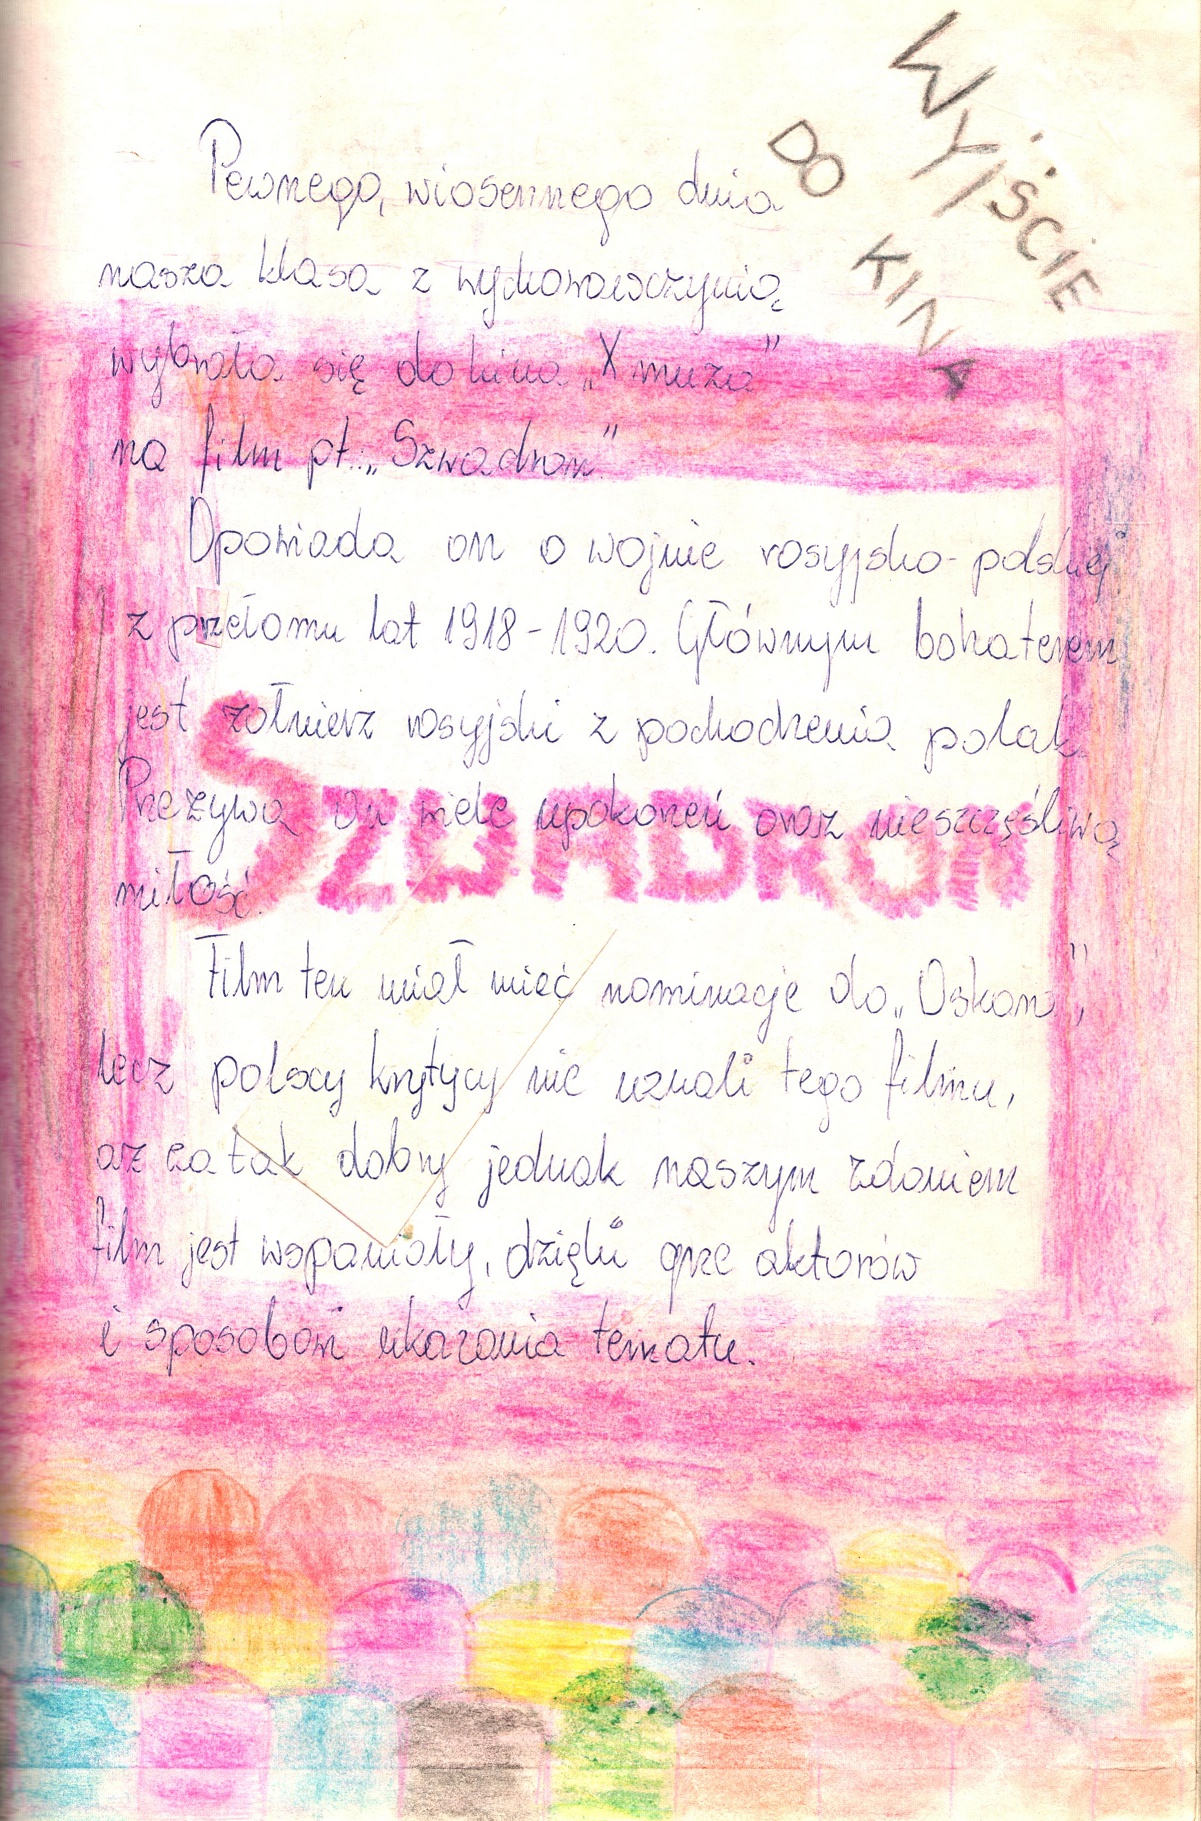 WYJŚCIE
DO KINA
Pewnego, wiosennego dnia
nasza klasa z wychowawczynią
wybrała się do kina „X muza"
na film pt.: „Szwadron"
Opowiada on o wojnie rosyjsko-polskiej
z przełomu lat 1918-1920. Głównym bohaterem
jest żołnierz rosyjski z pochodzenia polak.
Przeżywa on wiele upokorzeń oraz nieszczęśliwą
SZWADRON
miłość.
Film ten miał mieć nominacje do „Oskara",
lecz polscy krytycy nie uznali tego filmu,
aż za tak dobry jednak naszym zdaniem
film jest wspaniały, dzięki grze aktorów
i sposobowi ukazania tematu.